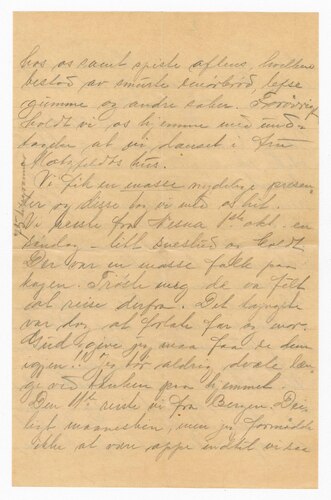 hos os samt spiste aftens, hvilken
bestod av smurte smørbrød, lefse
gumme og andre saker. Forøvrig
holdt vi os hjemme med und-
tagen at vi danset i
hus.
Vi fik en masse nydelige presen-
ter og disse har vi med os hit.
Vi reiste fra Nesna 1ste okt. en
søndag – litt snestud og koldt
Der var en masse folk paa
kagen. Trøste meg de va felt
at reise derfra. Det
var dog at forlate far og mor.
Gud give jeg maa faa se dem
igjen!! Jeg tør aldrig dvæle læn-
ge ved tanken paa hjemmet.
Den 11te reiste vi fra Bergen. Dei-
ligt mennesker, men jeg formådde
ikke at være oppe indtil vi saa